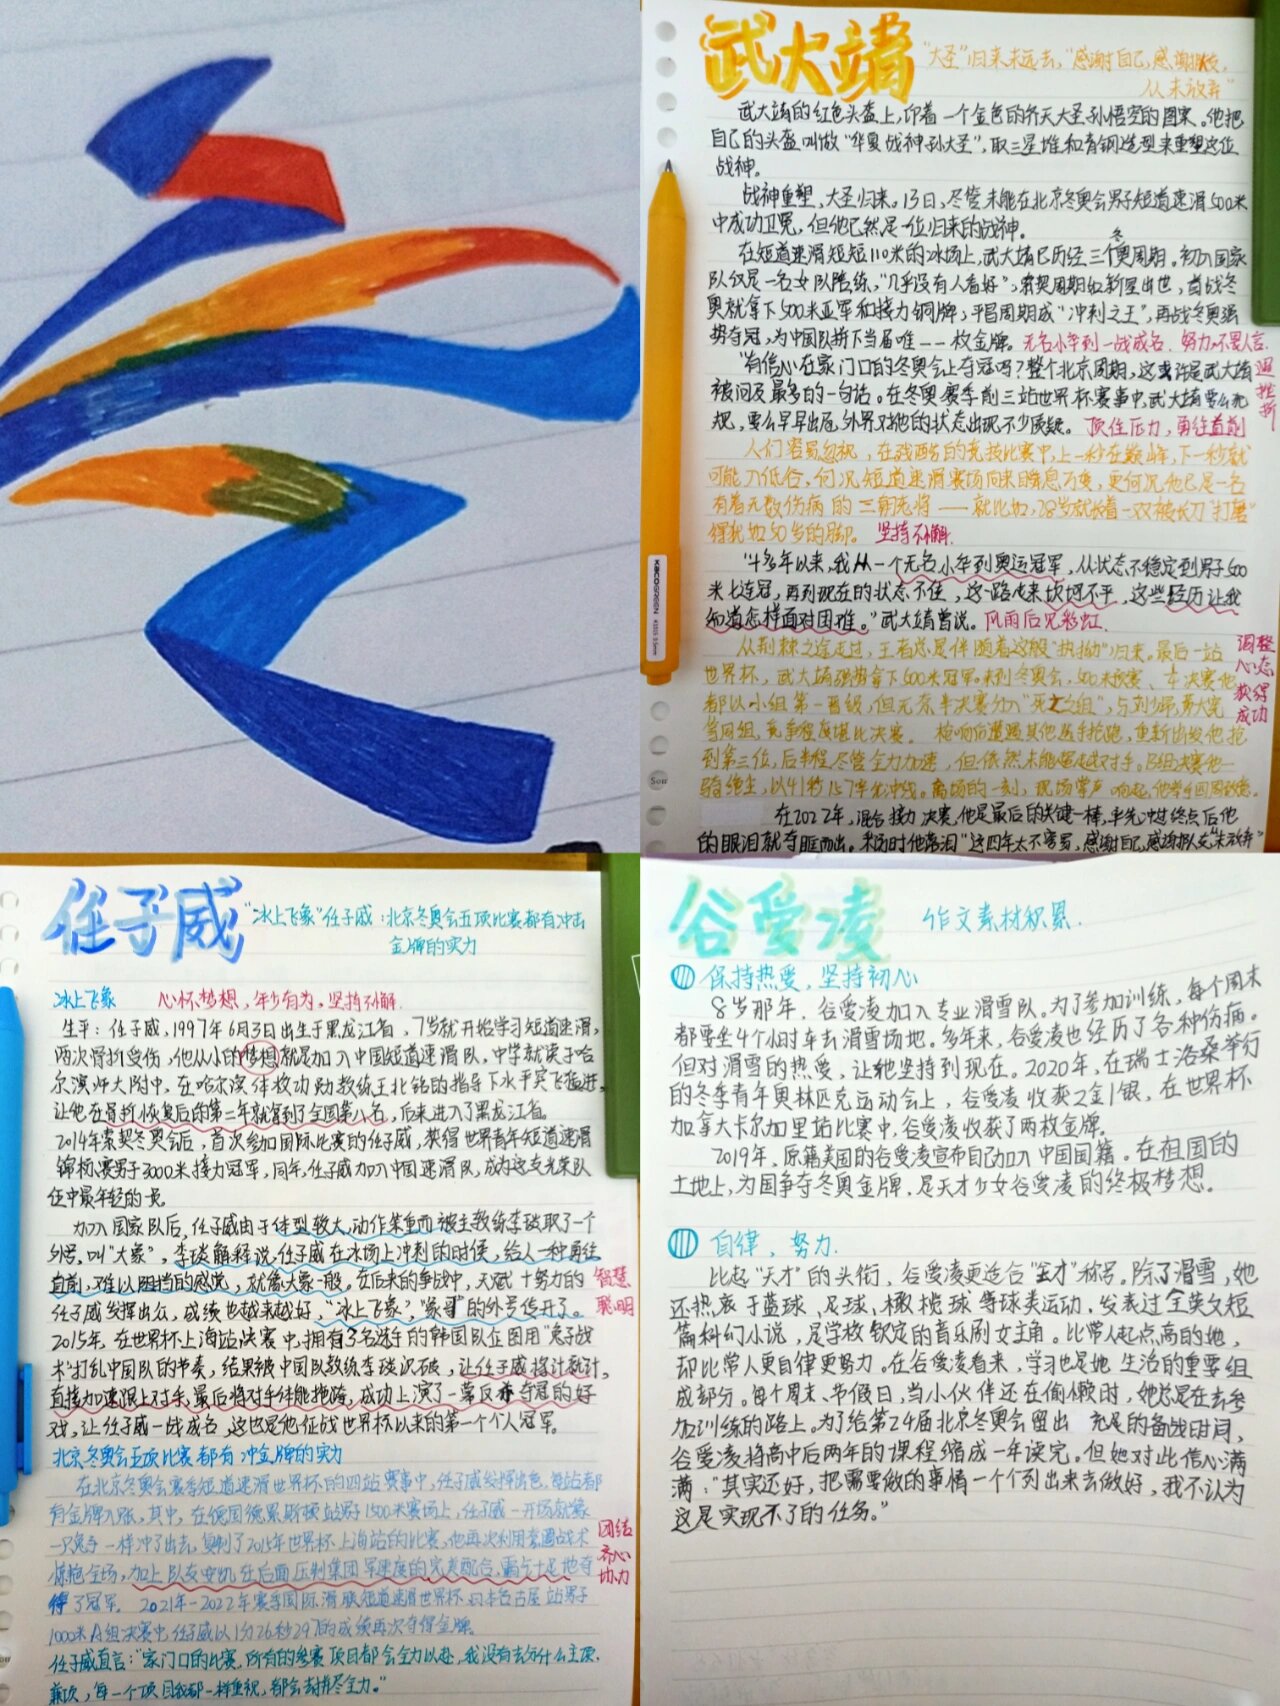 武大靖 "大圣"归来未远去,"感谢自己,感谢队友,
从未放弃"
武大靖的红色头盔上,印着一个金色的齐天大圣孙悟空的图案。他把
自己的头盔叫做"华夏战神孙大圣",取三星堆和青铜造型来重塑这位
战神。
战神重塑,大圣归来。13日,尽管未能在北京冬奥会男子短道速滑500米
中成功卫冕,但他已然是一位归来的战神。
在短道速滑短短110米的冰场上,武大靖已历经三个冬奥周期。初入国家
队仅是一名女队陪练,"几乎没有人看好",索契周期如新星出世,首战冬
奥就拿下500米亚军和接力铜牌,平昌周期成"冲刺之王",再战冬奥强
势夺冠,为中国队拼下当届唯一一枚金牌。无名小卒到一战成名,努力不畏人言.
"有信心在家门口的冬奥会上夺冠吗?整个北京周期,这或许是武大靖
被问及最多的一句话。在冬奥赛季前三站世界杯赛事中,武大靖要么犯
规,要么早早出局,外界对他的状态出现不少质疑。顶住压力,勇往直前
迎挫折
人们容易忽视,在残酷的竞技比赛中,上一秒在巅峰,下一秒就
可能入低谷,何况短道速滑赛场向来瞬息万变,更何况他已是一名
有着无数伤病的三朝老将——就比如,28岁就揣着一双被长刀"打磨"
得犹如50岁的脚。 坚持不懈.
"十多年以来,我从一个无名小卒到奥运冠军,从状态不稳定到男子500
米七连冠,再到现在的状态不佳,这一路走来坎坷不平,这些经历让我
知道怎样面对困难。"武大靖曾说。风雨后见彩虹.
从荆棘之途走过,王者总是伴随着这般"热拗"归来。最后一站
世界杯,武大靖强势拿下500米冠军。来到冬奥会,500米预赛、1/4决赛他
都以小组第一晋级,但无奈半决赛分入"死亡之组",与刘少昂、黄大宪
等同组,竞争程度堪比决赛。枪响后遭遇其他选手抢跑,重新出发他抢
到第三位,后半程尽管全力加速,但依然未能超越对手。B组决赛他一
骑绝尘,以41秒157率先冲线。离场的一刻,现场掌声响起,他举手回周致意。
调整心态获得成功
在2022年,混合接力决赛,他是最后的关键一棒,率先冲过终点后他
的眼泪就夺眶而出。采访时他落泪"这四年太不容易,感谢自己,感谢队友"未放弃"
任子威 "冰上飞象"任子威:北京冬奥会五项比赛都有冲击
金牌的实力
冰上飞象 心怀梦想,年少有为。坚持不懈.
生平:任子威,1997年6月3日出生于黑龙江省,7岁就开始学习短道速滑,
两次骨折受伤,他从小的梦想就是加入中国短道速滑队,中学就读于哈
尔滨师大附中,在哈尔滨体校功勋教练王北铭的指导下水平突飞猛进,
让他在骨折恢复后的第二年就拿到了全国第八名,后来进入了黑龙江省。
2014年索契冬奥会后,首次参加国际比赛的任子威,获得世界青年短道速滑
锦标赛男子3000米接力冠军,同年,任子威加入中国速滑队,成为这支光荣队
伍中最年轻的一员。
加入国家队后,任子威由于体型较大,动作笨重而被主教练李琰取了一个
外号,叫"大象",李琰解释说,任子威在冰场上冲刺的时候,给人一种勇往
直前,难以阻挡的感觉,就像大象一般。在后来的争战中,天赋十努力的
任子威发挥出众,成绩也越来越好,"冰上飞象","象哥"的外号传开了。
智慧聪明
2015年,在世界杯上海站决赛中,拥有3名选手的韩国队企图用"兔子战
术"打乱中国队的节奏,结果被中国队教练李琰识破,让任子威将计就计,
直接加速跟上对手,最后将对手体能拖垮,成功上演了一幕反赤夺冠的好
戏,让任子威一战成名,这也是他征战世界杯以来的第一个个人冠军。
北京冬奥会五项比赛都有冲金牌的实力
在北京冬奥会赛季短道速滑世界杯的四站赛事中,任子威发挥出色,每站都
有金牌入账,其中,在德国德累斯顿站男子1500米赛场上,任子威一开场就像
一只兔子一样冲了出去,复制了2015年世界杯上海站的比赛,他再次利用套圈战术
惊艳全场,加上队友安凯在后面压制集团军速度的完美配合,霸气十足地夺
得了冠军。2021年-2022年赛季国际滑联短道速滑世界杯日本名古屋站男子
1000米A组决赛中,任子威以1分26秒297的成绩再次夺得金牌。
团结齐心协力
任子威直言:"家门口的比赛,所有的参赛项目都会全力以赴,我没有去分什么主项,
兼项,每一个项目我都一样重视,都会去拼尽全力。"
谷爱凌 作文素材积累.
① 保持热爱,坚持初心
8岁那年,谷爱凌加入专业滑雪队。为了参加训练,每个周末
都要坐4个小时车去滑雪场地。多年来,谷爱凌也经历了各种伤病。
但对滑雪的热爱,让她坚持到现在。2020年,在瑞士洛桑举行
的冬季青年奥林匹克运动会上,谷爱凌收获2金1银,在世界杯
加拿大卡尔加里站比赛中,谷爱凌收获了两枚金牌。
2019年,原籍美国的谷爱凌宣布自己加入中国国籍。在祖国的
土地上,为国争夺冬奥金牌,是天才少女谷爱凌的终极梦想。
① 自律,努力.
比起"天才"的头衔,谷爱凌更适合"全才"称号。除了滑雪,她
还热衷于蓝球、足球、橄榄球等球类运动,发表过全英文短
篇科幻小说,是学校钦定的音乐剧女主角。比常人起点高的她,
却比常人更自律更努力。在谷爱凌看来,学习也是她生活的重要组
成部分。每个周末、节假日,当小伙伴还在偷懒时,她总是在去参
加训练的路上。为了给第24届北京冬奥会留出充足的备战时间,
谷爱凌将高中后两年的课程缩成一年读完。但她对此信心满
满:"其实还好,把需要做的事情一个个列出来去做好,我不认为
这是实现不了的任务。"
KACOGREEN